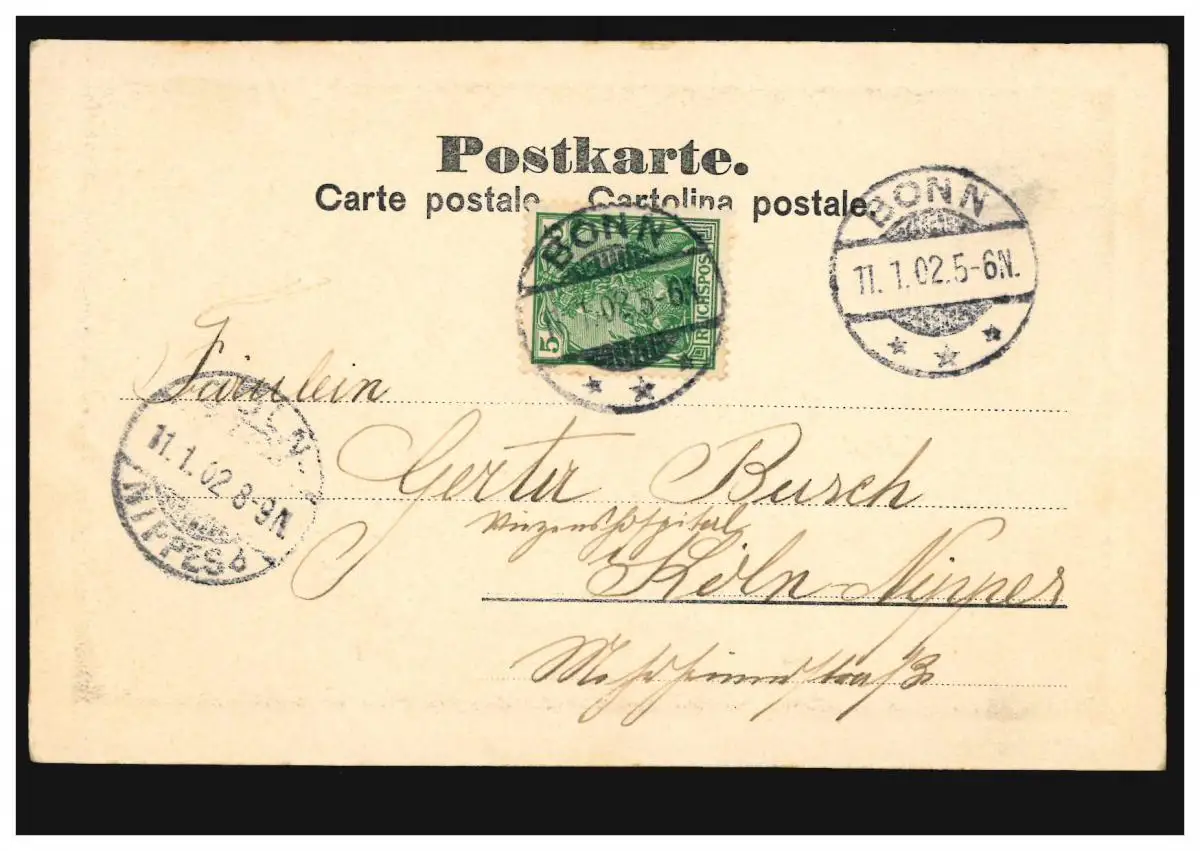 Postkarte.
Carte postale. Cartolina postale.
BONN
11.1.02.5-6N.
BONN
11.1.02.5-6N.
5
REICHSPOST
Fräulein
CÖLN-
11.1.02 8-9N
NIPPES b
Gertr Busch
Vinzenshospital
Köln-Nippes